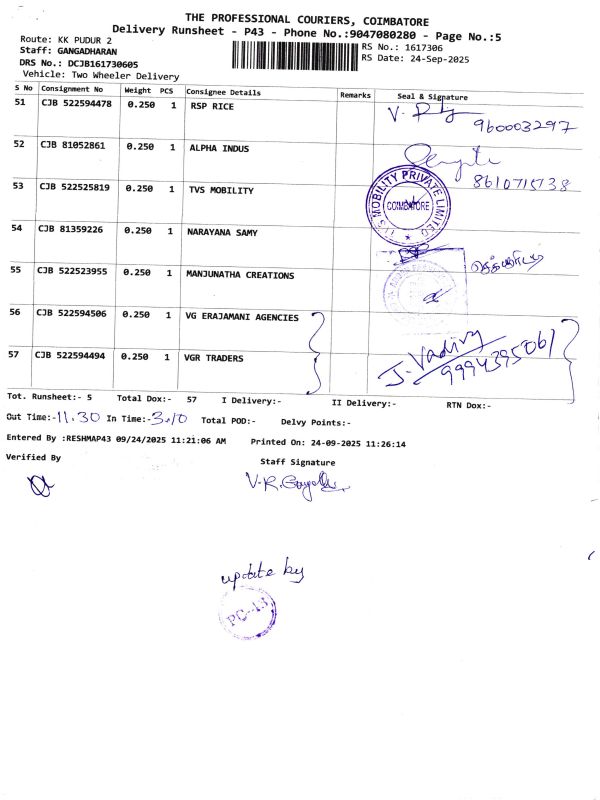 THE PROFESSIONAL COURIERS, COIMBATORE
Delivery Runsheet - P43 - Phone No.:9047080280 - Page No.:5
Route: KK PUDUR 2
RS No.: 1617306
Staff: GANGADHARAN
RS Date: 24-Sep-2025
DRS No.: DCJB161730605
Vehicle: Two Wheeler Delivery
S No Consignment No Weight PCS Consignee Details Remarks Seal & Signature
51 CJB 522594478 0.250 1 RSP RICE
960003297
52 CJB 81052861 0.250 1 ALPHA INDUS
8610715738
53 CJB 522525819 0.250 1 TVS MOBILITY
TVS MOBILITY PRIVATE LIMITED
COIMBATORE
54 CJB 81359226 0.250 1 NARAYANA SAMY
55 CJB 522523955 0.250 1 MANJUNATHA CREATIONS
56 CJB 522594506 0.250 1 VG ERAJAMANI AGENCIES
57 CJB 522594494 0.250 1 VGR TRADERS
J. Vadivu
9994395061
Tot. Runsheet:- 5 Total Dox:- 57 I Delivery:- II Delivery:- RTN Dox:-
Out Time:-11.30 In Time:-3.10 Total POD:- Delvy Points:-
Entered By :RESHMAP43 09/24/2025 11:21:06 AM Printed On: 24-09-2025 11:26:14
Verified By Staff Signature
update by
PC-43